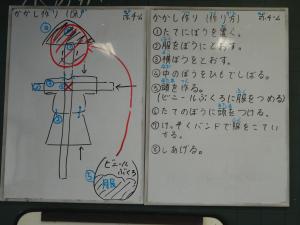 かかし作り
かかし作り(作り方)
①たてにぼうを置く。
②服をぼうにとおす。
③横ぼうをとおす。
④中のぼうをひもでしばる。
⑤頭を作る。
(ビニールぶくろに服をつめる)
⑥たてのぼうに頭をつける。
⑦けっそくバンドで服をこてい
する。
⑧しあげる。
(ビニール
ぶくろ)
⑤
服